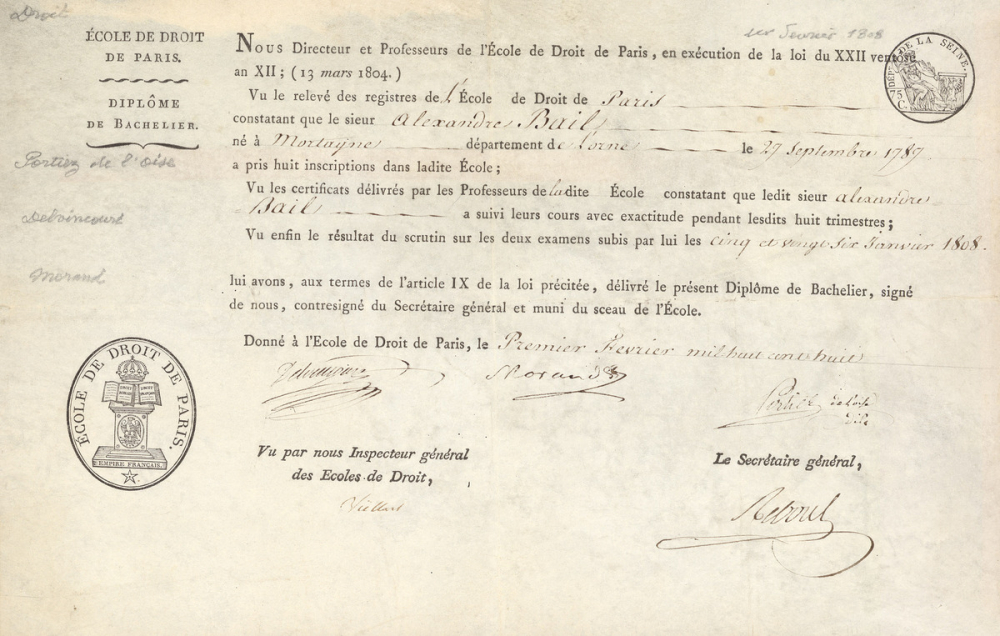 Droit
1er Fevrier 1808
ÉCOLE DE DROIT
DE PARIS.
DIPLÔME
DE BACHELIER.
Portiez de l'Oise
Delvincourt
Morand
NOUS Directeur et Professeurs de l'École de Droit de Paris, en exécution de la loi du XXII ventose
an XII; (13 mars 1804.)
Vu le relevé des registres de l'École de Droit de Paris
constatant que le sieur Alexandre Bail
né à Mortagne département de l'orne le 27 Septembre 1787
a pris huit inscriptions dans ladite École;
Vu les certificats délivrés par les Professeurs de ladite École constatant que ledit sieur alexandre
Bail a suivi leurs cours avec exactitude pendant lesdits huit trimestres;
Vu enfin le résultat du scrutin sur les deux examens subis par lui les cinq et vingt six Janvier 1808.
lui avons, aux termes de l'article IX de la loi précitée, délivré le présent Diplôme de Bachelier, signé
de nous, contresigné du Secrétaire général et muni du sceau de l'École.
Donné à l'Ecole de Droit de Paris, le Premier Fevrier mil huit cent huit
Delvincourt Morand Portiez de l'oise
Vu par nous Inspecteur général
des Ecoles de Droit,
Viellart
Le Secrétaire général,
Reboul
DÉP.T DE LA SEINE.
75 C.
ÉCOLE DE DROIT DE PARIS.
EMPIRE FRANÇAIS